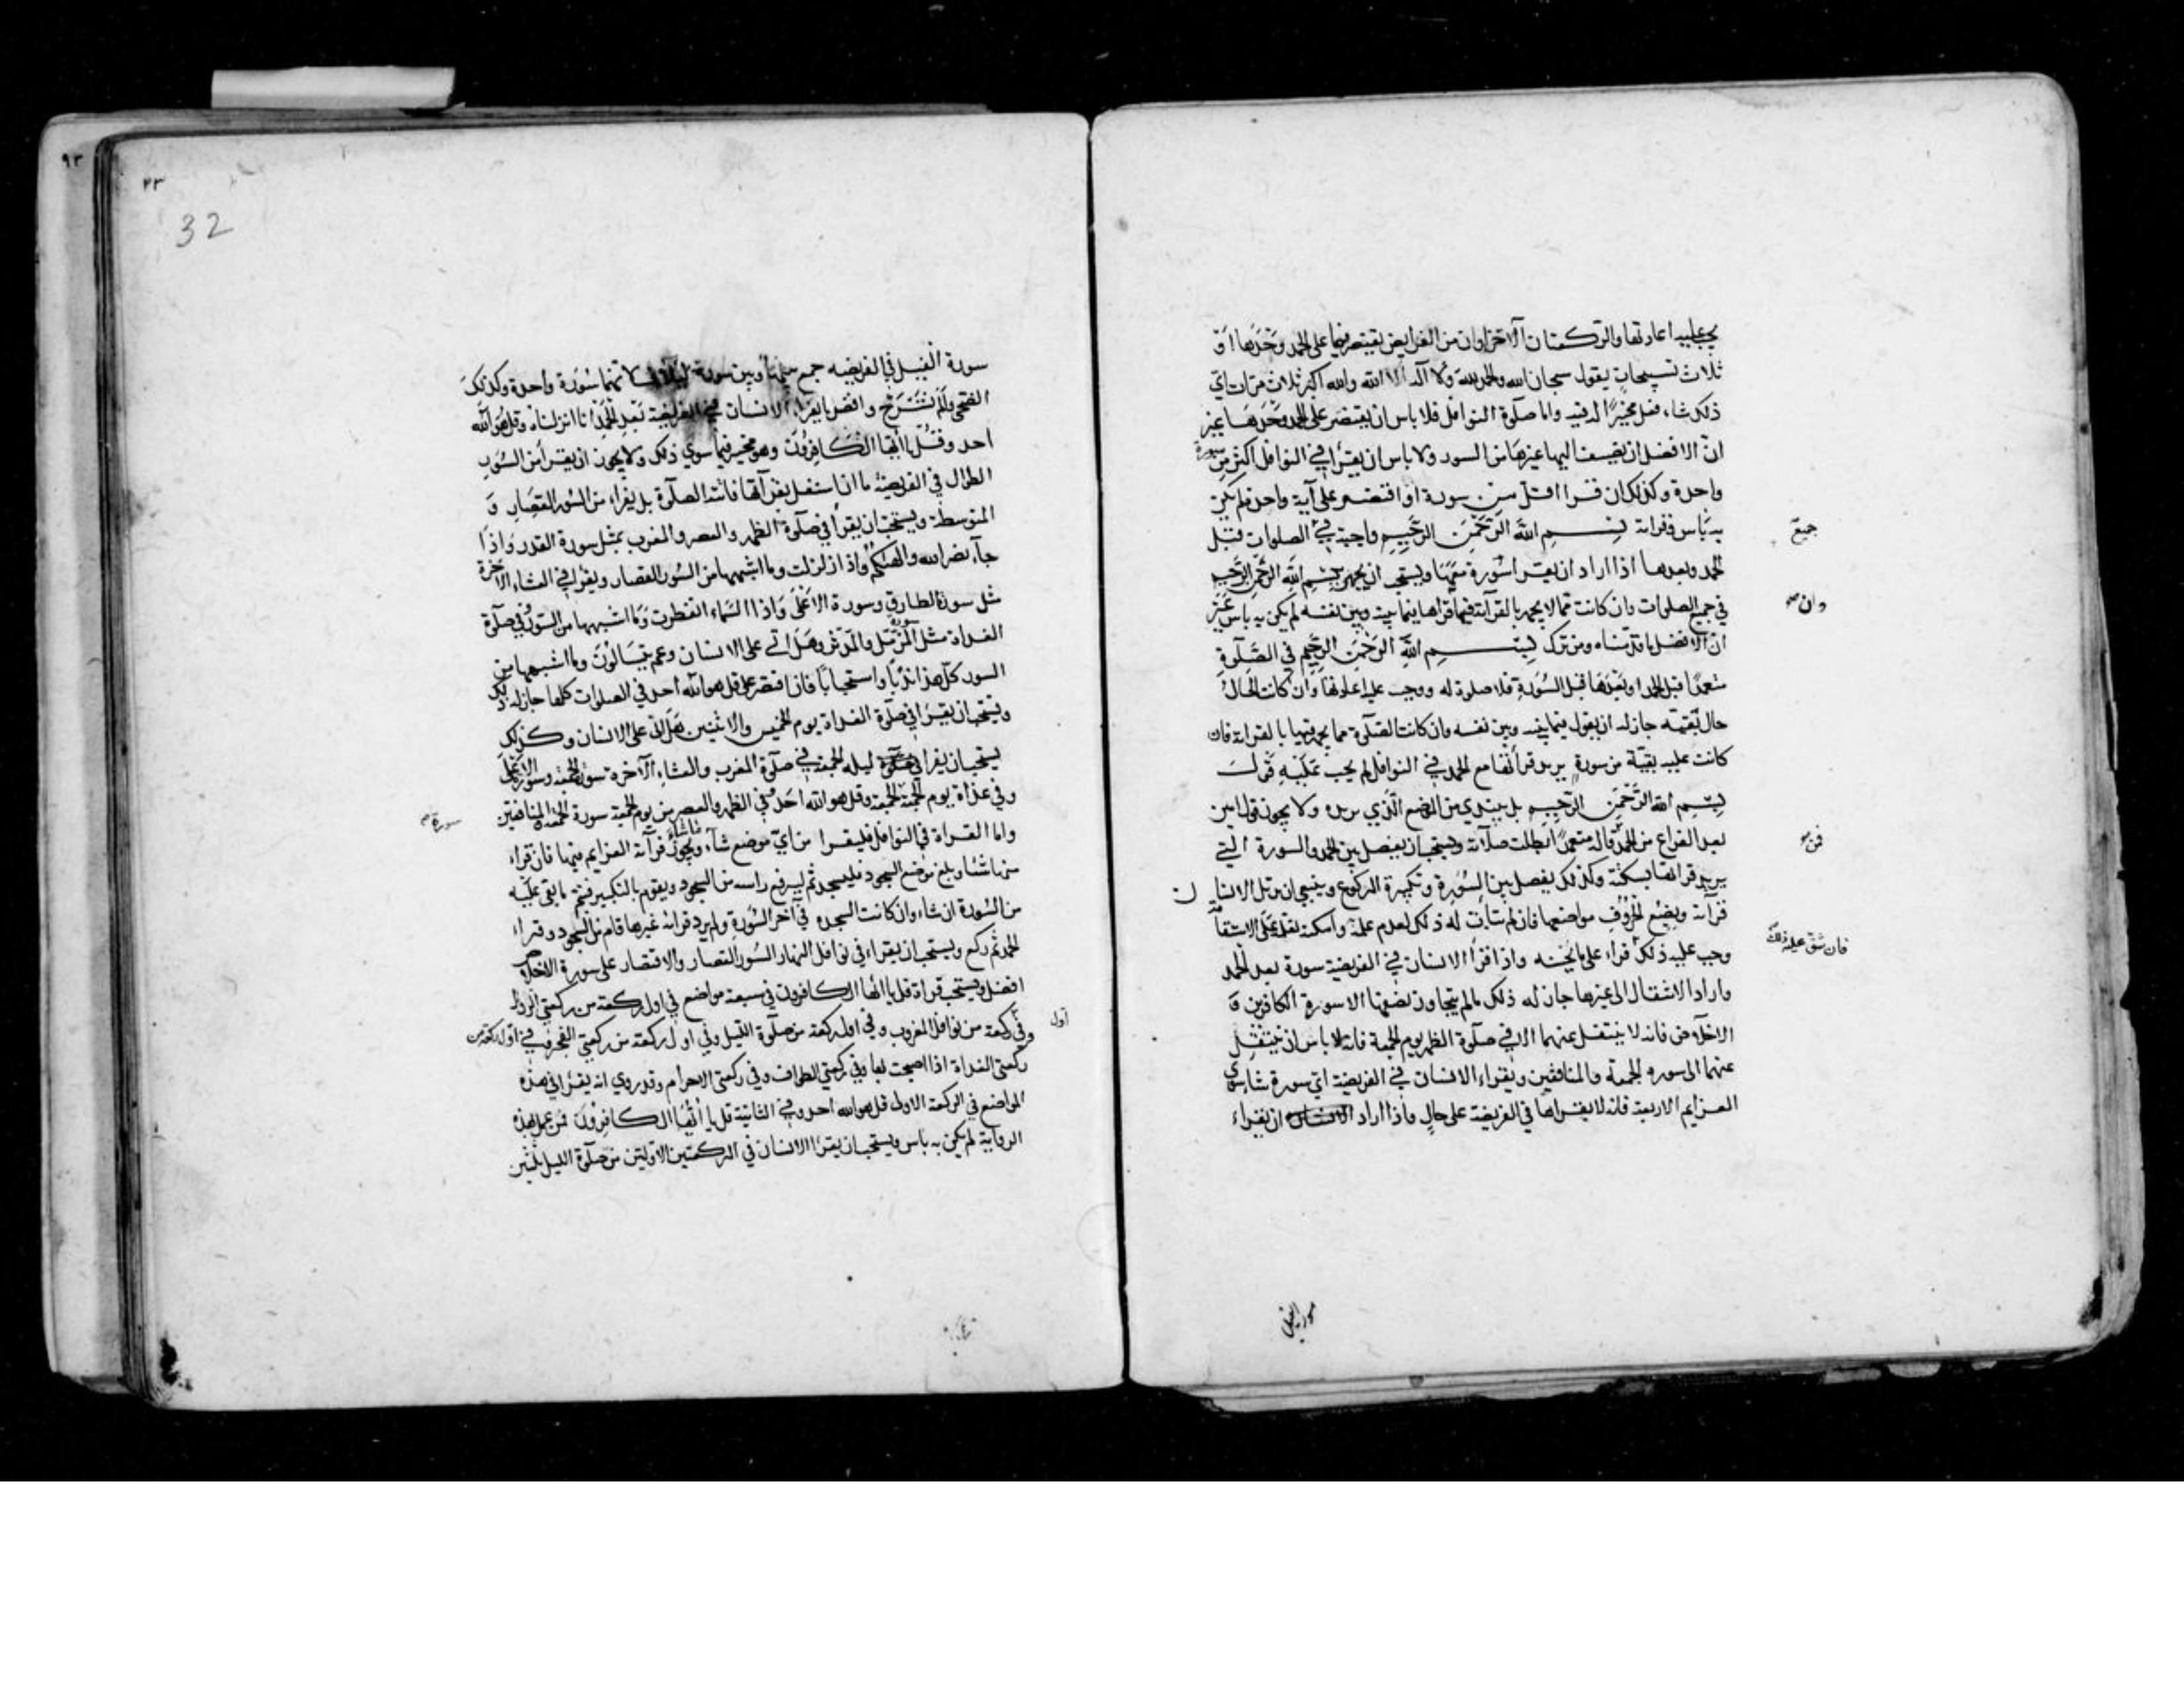 يجب عليه اعادتها والركعتان الآخراوان من الفرايض يقتصر فيها على الحمد وحدها او
ثلاث تسبيحات يقول سبحان الله والحمد لله ولا اله الا الله والله اكبر ثلاث مرات اي
ذلك شاء فعل مخيرا لدفيه واما صلوة النوافل فلا باس ان يقتصر على الحمد وحدها غير
ان الافضل ان يضيف اليها غيرها من السور ولا باس ان يقرأ في النوافل اكثر من سورة
واحدة وكذلك ان قرا اقل من سورة او اقتصر على آية واحدة لم يكن
به باس وقراءة بسم الله الرحمن الرحيم واجبة في جميع الصلوات قبل
الحمد وبعدها اذا اراد ان يقرا سورة معها ويستحب ان يجهر ببسم الله الرحمن الرحيم
في جميع الصلوات وان كانت مما لا يجهر بالقرآة فيها وان قراها فيما بينه وبين نفسه لم يكن به باس غير
ان الافضل ما قدمناه ومن ترك بسم الله الرحمن الرحيم في الصلوة
متعمدا قبل الحمد او بعدها قبل السورة فلا صلوة له ووجب عليه اعادتها وان كانت الحال
حال تقيه جاز له ان يقول فيما بينه وبين نفسه وان كانت الصلوة مما يجهر فيها بالقراءة فان
كانت عليه بقية من سورة يريد قرأتها مع الحمد في النوافل لم يجب عليه قول
بسم الله الرحمن الرحيم بل يبتدي من الموضع الذي يريده ولا يجوز قول امين
بعد الفراغ من الحمد فمن قاله متعمدا بطلت صلاته ويستحب ان يفصل بين الحمد والسورة التي
يريد قرائتها بسكتة وكذلك يفصل بين السورة وتكبيرة الركوع وينبغي ان يرتل الانسان
قرآته ويضع الحروف مواضعها فان لم يتأت له ذلك لعدم علمه وامكنه تعلمه على الاستقامة
وجب عليه ذلك فان شق عليه ذلك قراء على ما يحسنه واذا قرأ الانسان في الفريضة سورة بعد الحمد
واراد الانتقال الى غيرها جاز له ذلك ما لم يتجاوز نصفها الا سورة الكافرين و
الاخلاص فانه لا ينتقل عنهما الا في صلوة الظهر يوم الجمعة فانه لا باس ان ينتقل
عنهما الى سوره الجمعة والمنافقين ويقراء الانسان في الفريضة اي سورة شاء سوى
العزايم الاربعة فانه لا يقراها في الفريضة على حال واذا اراد الانسان ان يقراء
سورة الفيل
32
سورة الفيل في الفريضه جمع بينها وبين سورة لئلاف لانهما سورة واحدة وكذلك
الضحى ولم نشرح وافضل ما يقراء الانسان في الفريضة بعد الحمد انا انزلناه وقل هو الله
احد وقل يا ايها الكافرون وهو مخير فيما سوي ذلك ولا يجوز ان يقرأ من السور
الطوال في الفريضة ما ان اشتغل بقرآتها فاتته الصلوة بل يقراء من السور القصار و
المتوسطة ويستحب ان يقرأ في صلوة الظهر والعصر والمغرب بمثل سورة القدر واذا
جآء نصر الله والهيكم واذا زلزلت وما اشبهها من السور القصار ويقرا في العشاء الآخرة
مثل سورة الطارق وسورة الاعلى واذا السماء انفطرت وما اشبهها من السور وفي صلوة
الغداة مثل سورة المزمل والمدثر وهل اتى على الانسان وعم يتسالون وما اشبهها من
السور كل هذا ندبا واستحبابا فان اقتصر على قل هو الله احد في الصلوات كلها جاز له ذلك
ويستحب ان يقرا في صلوة الغداة يوم الخميس والاثنين هل اتى على الانسان وكذلك
يستحب ان يقرا ليله الجمعة في صلوة المغرب والعشاء الآخره سورة الجمعه وسورة الاعلى
وفي غداة يوم الجمعة الجمعة وقل هو الله احد وفي الظهر والعصر من يوم الجمعة سورة الجمعة وسورة المنافقين
واما القراة في النوافل فليقرا من اي موضع شآء ما شاء ويجوز قرآة العزايم فيها فان قراء
منها شئا وبلغ موضع السجود فليسجد ثم ليرفع راسه من السجود ويقوم بالتكبير فيتم ما بقي عليه
من السورة ان شاء وان كانت السجده في آخر السورة ولم يرد قرائة غيرها قام من السجود وقراء
الحمد ثم ركع ويستحب ان يقراء في نوافل النهار السور القصار والاقتصار على سورة الاخلاص
افضل ويستحب قراة قل يا ايها الكافرون في سبعة مواضع في اول ركعة من ركعتي الزوال
وفي اول ركعة من نوافل المغرب وفي اول ركعة من صلوة الليل وفي اول ركعة من ركعتي الفجر وفي اول ركعة من
ركعتي الغداة اذا اصبحت بها وفي ركعتي الطواف وفي ركعتي الاحرام وقد روي انه يقرا في هذه
المواضع في الركعة الاولى قل هو الله احد وفي الثانية قل يا ايها الكافرون فمن عمل بهذه
الرواية لم يكن به باس ويستحب ان يقرا الانسان في الركعتين الاولتين من صلوة الليل ثلثين